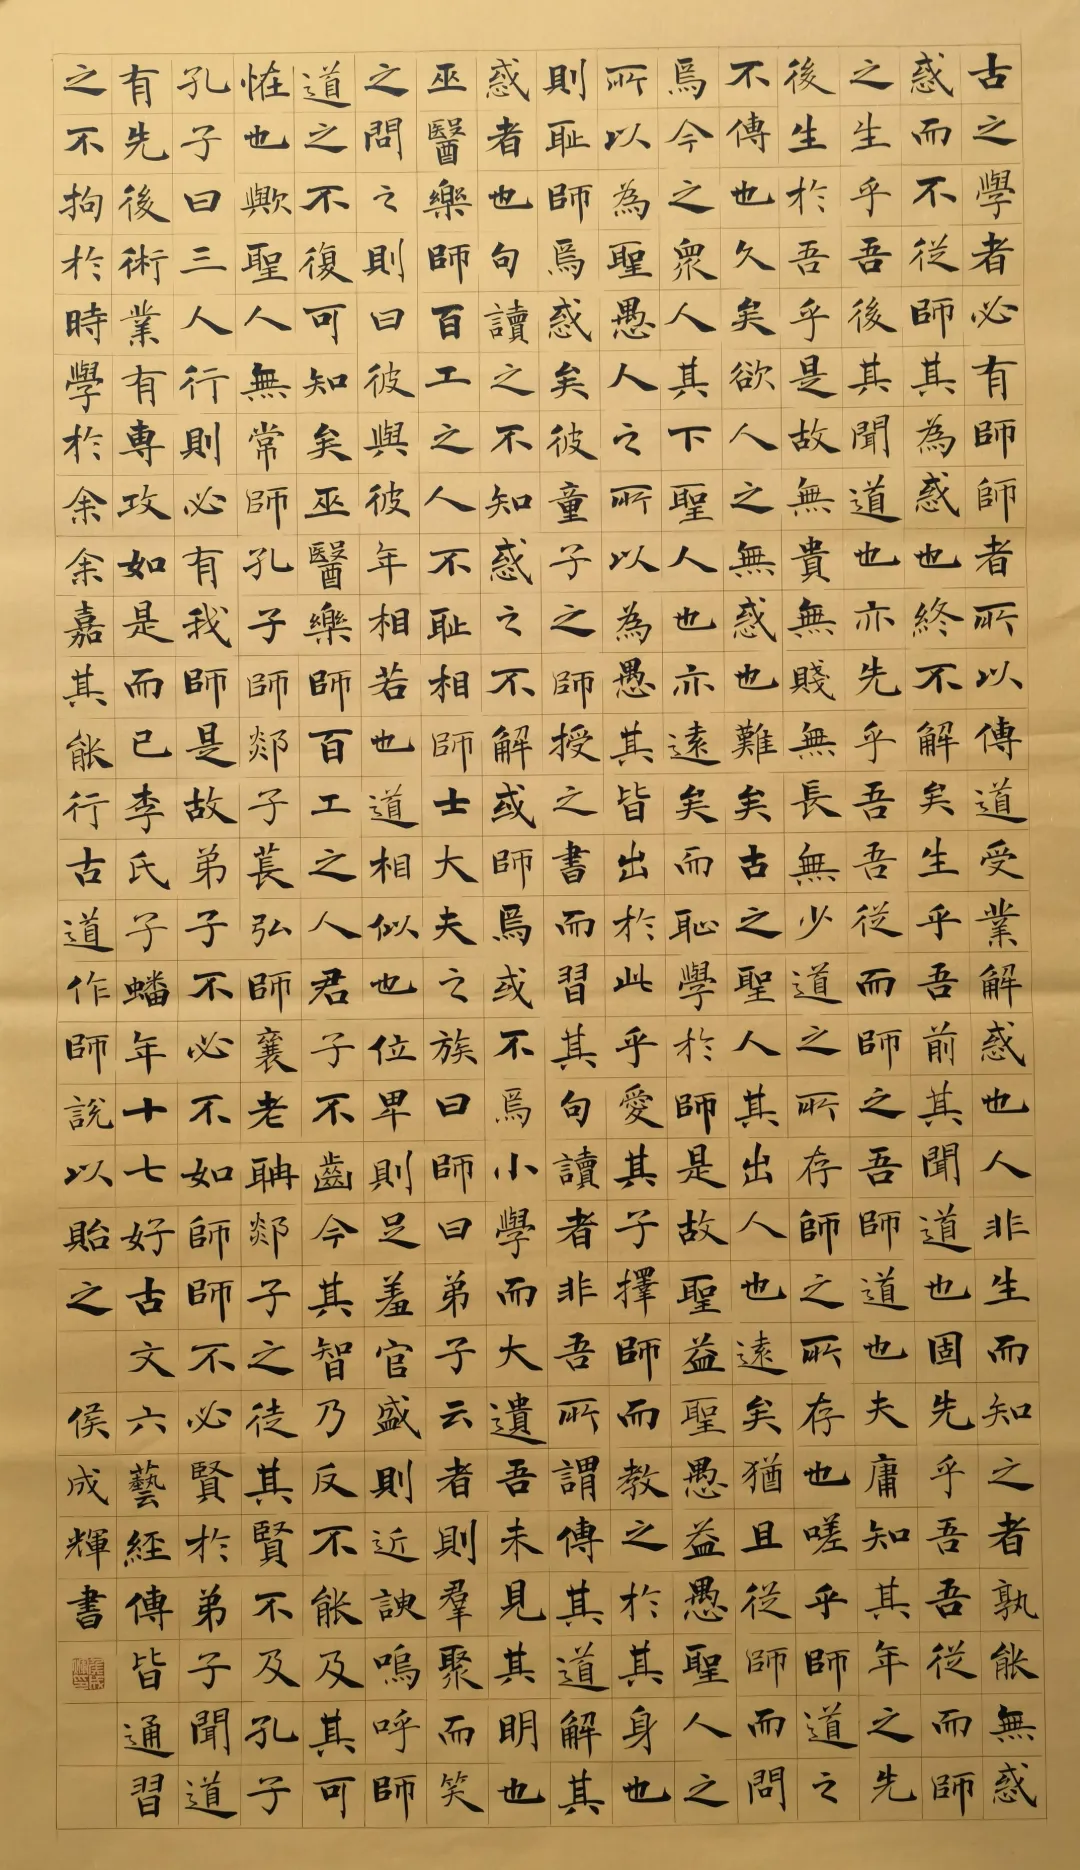 古之學者必有師師者所以傳道受業解惑也人非生而知之者孰能無惑
惑而不從師其為惑也終不解矣生乎吾前其聞道也固先乎吾吾從而師
之生乎吾後其聞道也亦先乎吾吾從而師之吾師道也夫庸知其年之先
後生於吾乎是故無貴無賤無長無少道之所存師之所存也嗟乎師道之
不傳也久矣欲人之無惑也難矣古之聖人其出人也遠矣猶且從師而問
焉今之眾人其下聖人也亦遠矣而恥學於師是故聖益聖愚益愚聖人之
所以為聖愚人之所以為愚其皆出於此乎愛其子擇師而教之於其身也
則耻師焉惑矣彼童子之師授之書而習其句讀者非吾所謂傳其道解其
惑者也句讀之不知惑之不解或師焉或不焉小學而大遺吾未見其明也
巫醫樂師百工之人不耻相師士大夫之族曰師曰弟子云者則羣聚而笑
之問之則曰彼與彼年相若也道相似也位卑則足羞官盛則近諛嗚呼師
道之不復可知矣巫醫樂師百工之人君子不齒今其智乃反不能及其可
恠也歟聖人無常師孔子師郯子萇弘師襄老聃郯子之徒其賢不及孔子
孔子曰三人行則必有我師是故弟子不必不如師師不必賢於弟子聞道
有先後術業有專攻如是而已李氏子蟠年十七好古文六藝經傳皆通習
之不拘於時學於余余嘉其能行古道作師說以貽之 侯成輝書